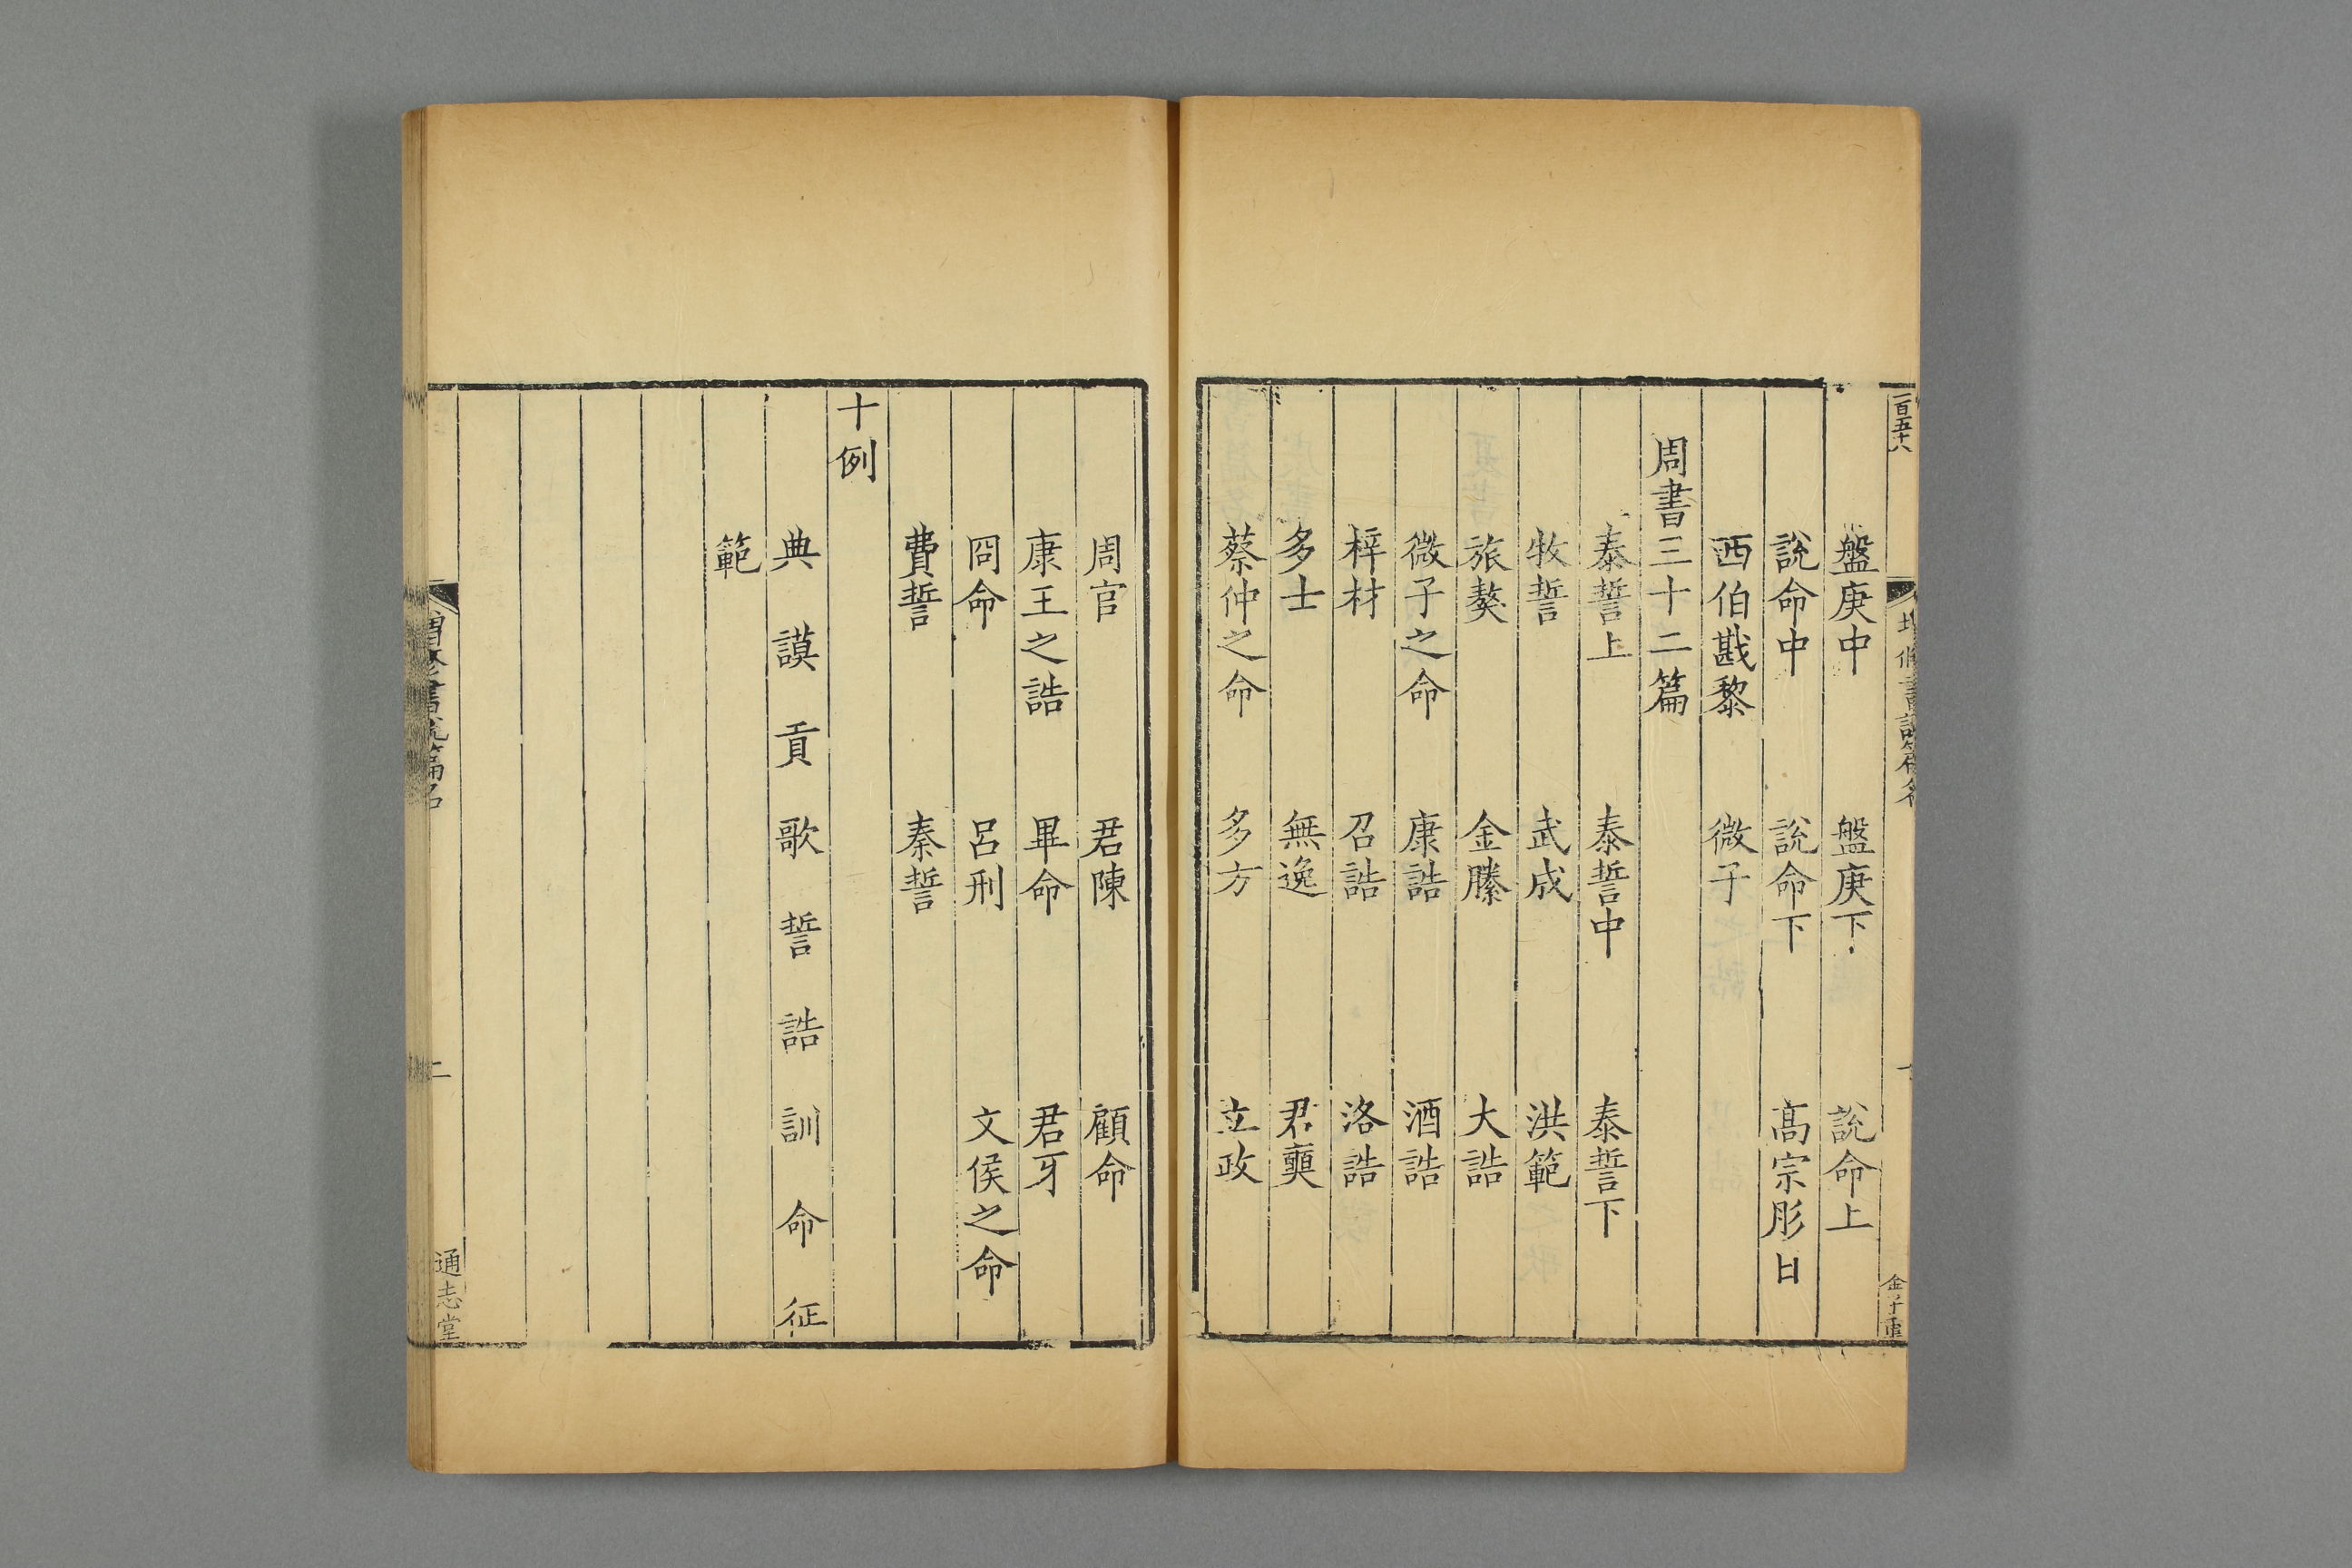 一百五十八
金子重
盤庚中 盤庚下 說命上
說命中 說命下 髙宗肜日
西伯戡黎 微子
周書三十二篇
泰誓上 泰誓中 泰誓下
牧誓 武成 洪範
旅獒 金縢 大誥
微子之命 康誥 酒誥
梓材 召誥 洛誥
多士 無逸 君奭
蔡仲之命 多方 立政
周官 君陳 顧命
康王之誥 畢命 君牙
冏命 呂刑 文侯之命
費誓 秦誓
十例
典 謨 貢 歌 誓 誥 訓 命 征
範
書說篇名
二
通志堂